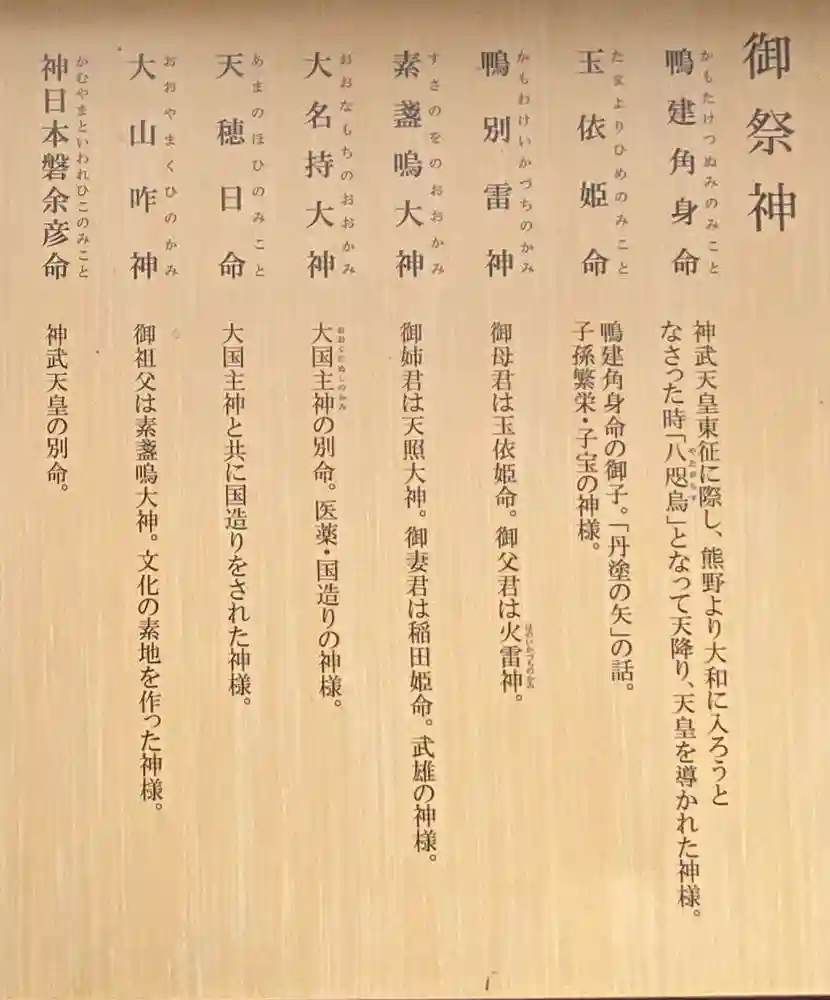 御祭神
かもたけつぬみのみこと
鴨建角身命
神武天皇東征に際し、熊野より大和に入ろうと
なさった時「八咫烏」となって天降り、天皇を導かれた神様。
やたがらす
たまよりひめのみこと
玉依姫命
鴨建角身命の御子。「丹塗の矢」の話。
子孫繁栄・子宝の神様。
かもわけいかづちのかみ
鴨別雷神
御母君は玉依姫命。御父君は火雷神。
すさのをのおおかみ
素盞嗚大神
御姉君は天照大神。御妻君は稲田姫命。武雄の神様。
おおなもちのおおかみ
大名持大神
大国主神の別命。医薬・国造りの神様。
おおくにぬしのかみ
あまのほひのみこと
天穂日命
大国主神と共に国造りをされた神様。
おおやまくひのかみ
大山咋神
御祖父は素盞嗚大神。文化の素地を作った神様。
かむやまといわれひこのみこと
神日本磐余彦命
神武天皇の別命。